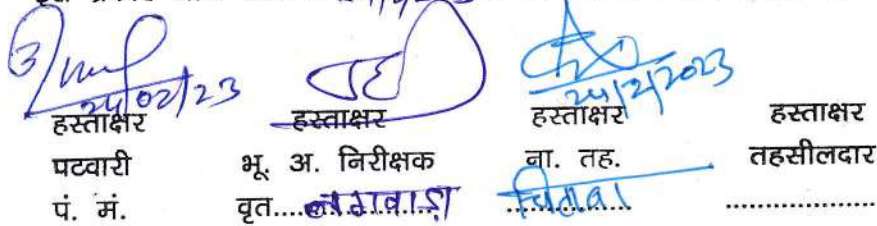 24/02/23 24/2/2023
हस्ताक्षर हस्ताक्षर हस्ताक्षर हस्ताक्षर
पटवारी भू. अ. निरीक्षक ना. तह. तहसीलदार
पं. मं. वृत.................. .................. ..................